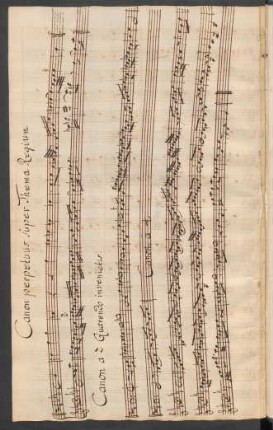 Canon perpetuus super Thema Regium
Canon a 2 Quaerendo invenietis
Canon a 4